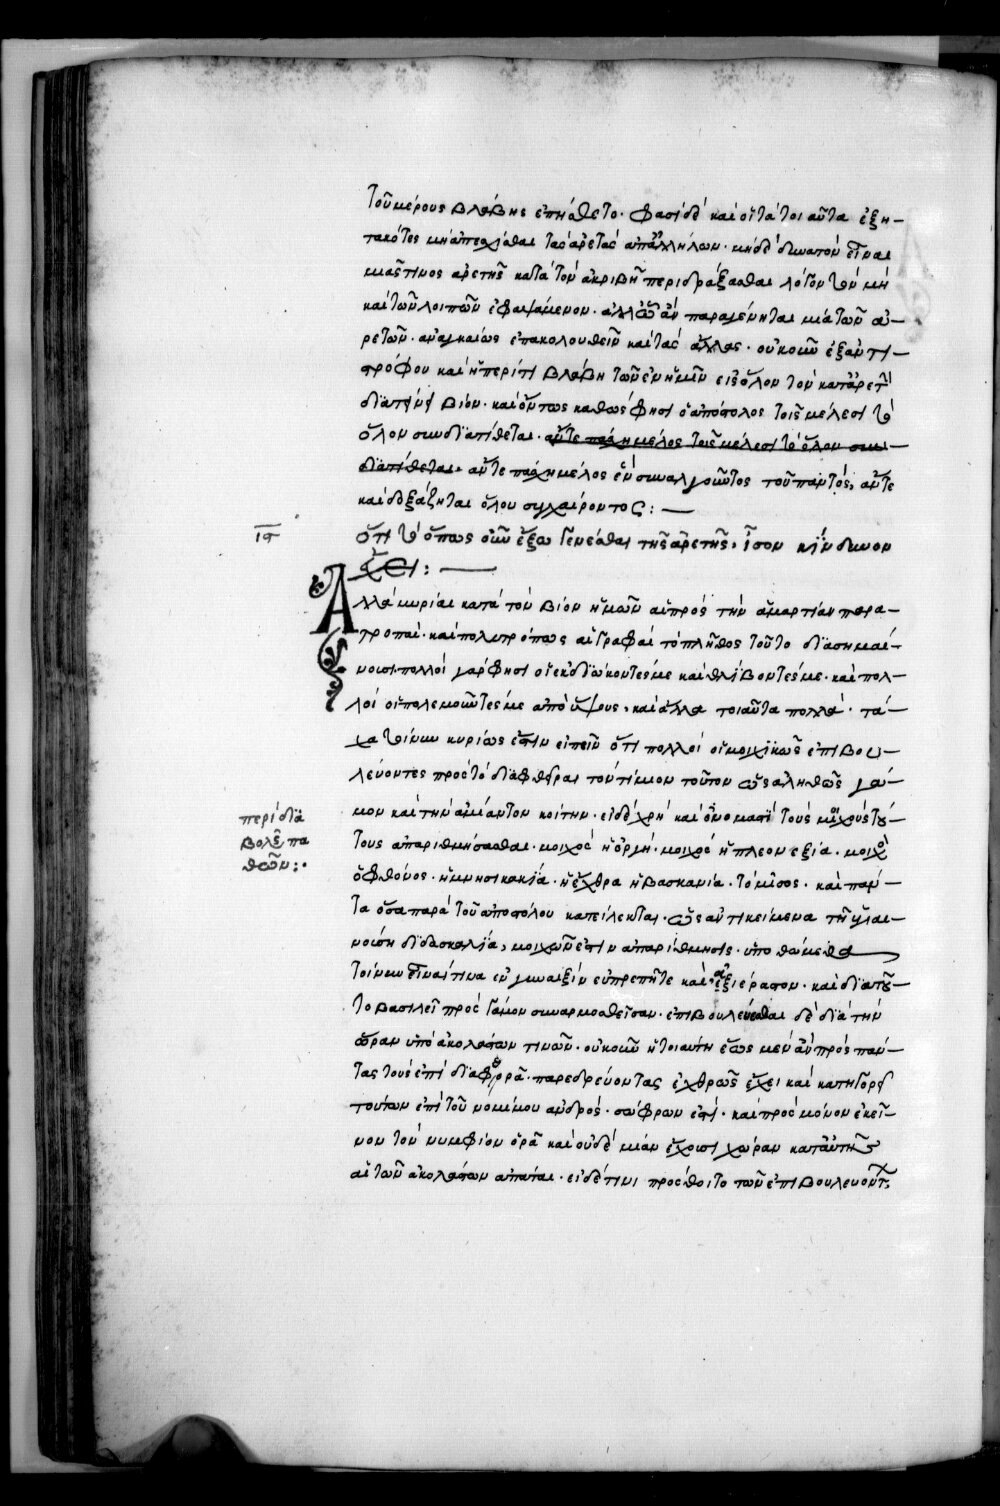 τοῦ μέρους βλάβης ἐπηάθετο· φασὶ δὲ καὶ οἱ τὰ τοιαῦτα ἐξη-
τακότες μὴ ἀπεσχίσθαι τὰς ἀρετὰς ἀπ' ἀλλήλων· μηδὲ δυνατὸν εἶναι
μιᾶς τινος ἀρετῆς κατὰ τὸν ἀκριβῆ περιδράξασθαι λόγον τὸν μὴ
καὶ τῶν λοιπῶν ἐφαψάμενον· ἀλλ' ᾧ ἂν παραγένηται μία τῶν ἀ-
ρετῶν· ἀναγκαίως ἐπακολουθεῖν καὶ τὰς ἄλλας· οὐκοῦν ἐξ ἀντι-
στρόφου καὶ ἡ περί τι βλάβη τῶν ἐν ἡμῖν εἰς ὅλον τὸν κατ' ἀρετὴν
διατείνει βίον· καὶ ὄντως καθώς φησι ὁ ἀπόστολος τοῖς μέλεσι τὸ
ὅλον συνδιατίθεται· ἄν τε πάσχῃ μέλος τοῖς μέλεσι τὸ ὅλον συν-
διατίθεται· ἄν τε πάσχῃ μέλος ἓν συναλγοῦντος τοῦ παντός, ἄν τε
καὶ δοξάζηται ὅλου συγχαίροντος: —
ιϛ
ὅτι τὸ ὅπως οὖν ἔξω γενέσθαι τῆς ἀρετῆς, ἴσον κίνδυνον
ἔχει: —
Ἀλλὰ μυρίαι κατὰ τὸν βίον ἡμῶν αἱ πρὸς τὴν ἁμαρτίαν παρα-
τροπαί· καὶ πολυτρόπως αἱ γραφαὶ τὸ πλῆθος τοῦτο διασημαί-
νουσι· πολλοὶ γάρ φησι οἱ ἐκδιώκοντές με καὶ θλίβοντές με· καὶ πολ-
λοὶ οἱ πολεμοῦντές με ἀπὸ ὕψους, καὶ ἄλλα τοιαῦτα πολλά· τά-
χα τοίνυν κυρίως ἔστιν εἰπεῖν ὅτι πολλοὶ οἱ μοιχικῶς ἐπιβου-
λεύοντες πρὸς τὸ διαφθεῖραι τὸν τίμιον τοῦτον ὡς ἀληθῶς γά-
μον καὶ τὴν ἀμίαντον κοίτην· εἰ δὲ χρὴ καὶ ὀνομαστὶ τοὺς μοιχοὺς τού-
περὶ δια
βολῆς πα
θῶν:·
τους ἀπαριθμήσασθαι· μοιχὸς ἡ ὀργή· μοιχὸς ἡ πλεονεξία· μοιχὸς
ὁ φθόνος· ἡ μνησικακία· ἡ ἔχθρα ἡ βασκανία· τὸ μῖσος· καὶ πάν-
τα ὅσα παρὰ τοῦ ἀποστόλου κατείλεκται· ὡς ἀντικείμενα τῇ ὑγιαι-
νούσῃ διδασκαλία, μοιχῶν ἐστιν ἀπαρίθμησις· ὑποθώμεθα
τοίνυν εἶναί τινα ἐν γυναιξὶν εὐπρεπῆ τε καὶ ἀξιέραστον· καὶ διατοῦ-
το βασιλεῖ πρὸς γάμον συναρμοσθεῖσαν· ἐπιβουλεύεσθαι δὲ διὰ τὴν
ὥραν ὑπὸ ἀκολάστων τινῶν· οὐκοῦν ἡ τοιαύτη ἕως μὲν ἂν πρὸς πάν-
τας τοὺς ἐπὶ διαφθορᾷ· παρεδρεύοντας ἐχθρῶς ἔχει καὶ κατηγορεῖ
τούτων ἐπὶ τοῦ νομίμου ἀνδρός· σώφρων ἐστί· καὶ πρὸς μόνον ἐκεῖ-
νον τὸν νυμφίον ὁρᾷ καὶ οὐδὲ μίαν ἔχουσι χώραν κατ' αὐτῆς
αἱ τῶν ἀκολάστων ἀπάται· εἰ δέ τινι προσθοῖτο τῶν ἐπιβουλευόντ